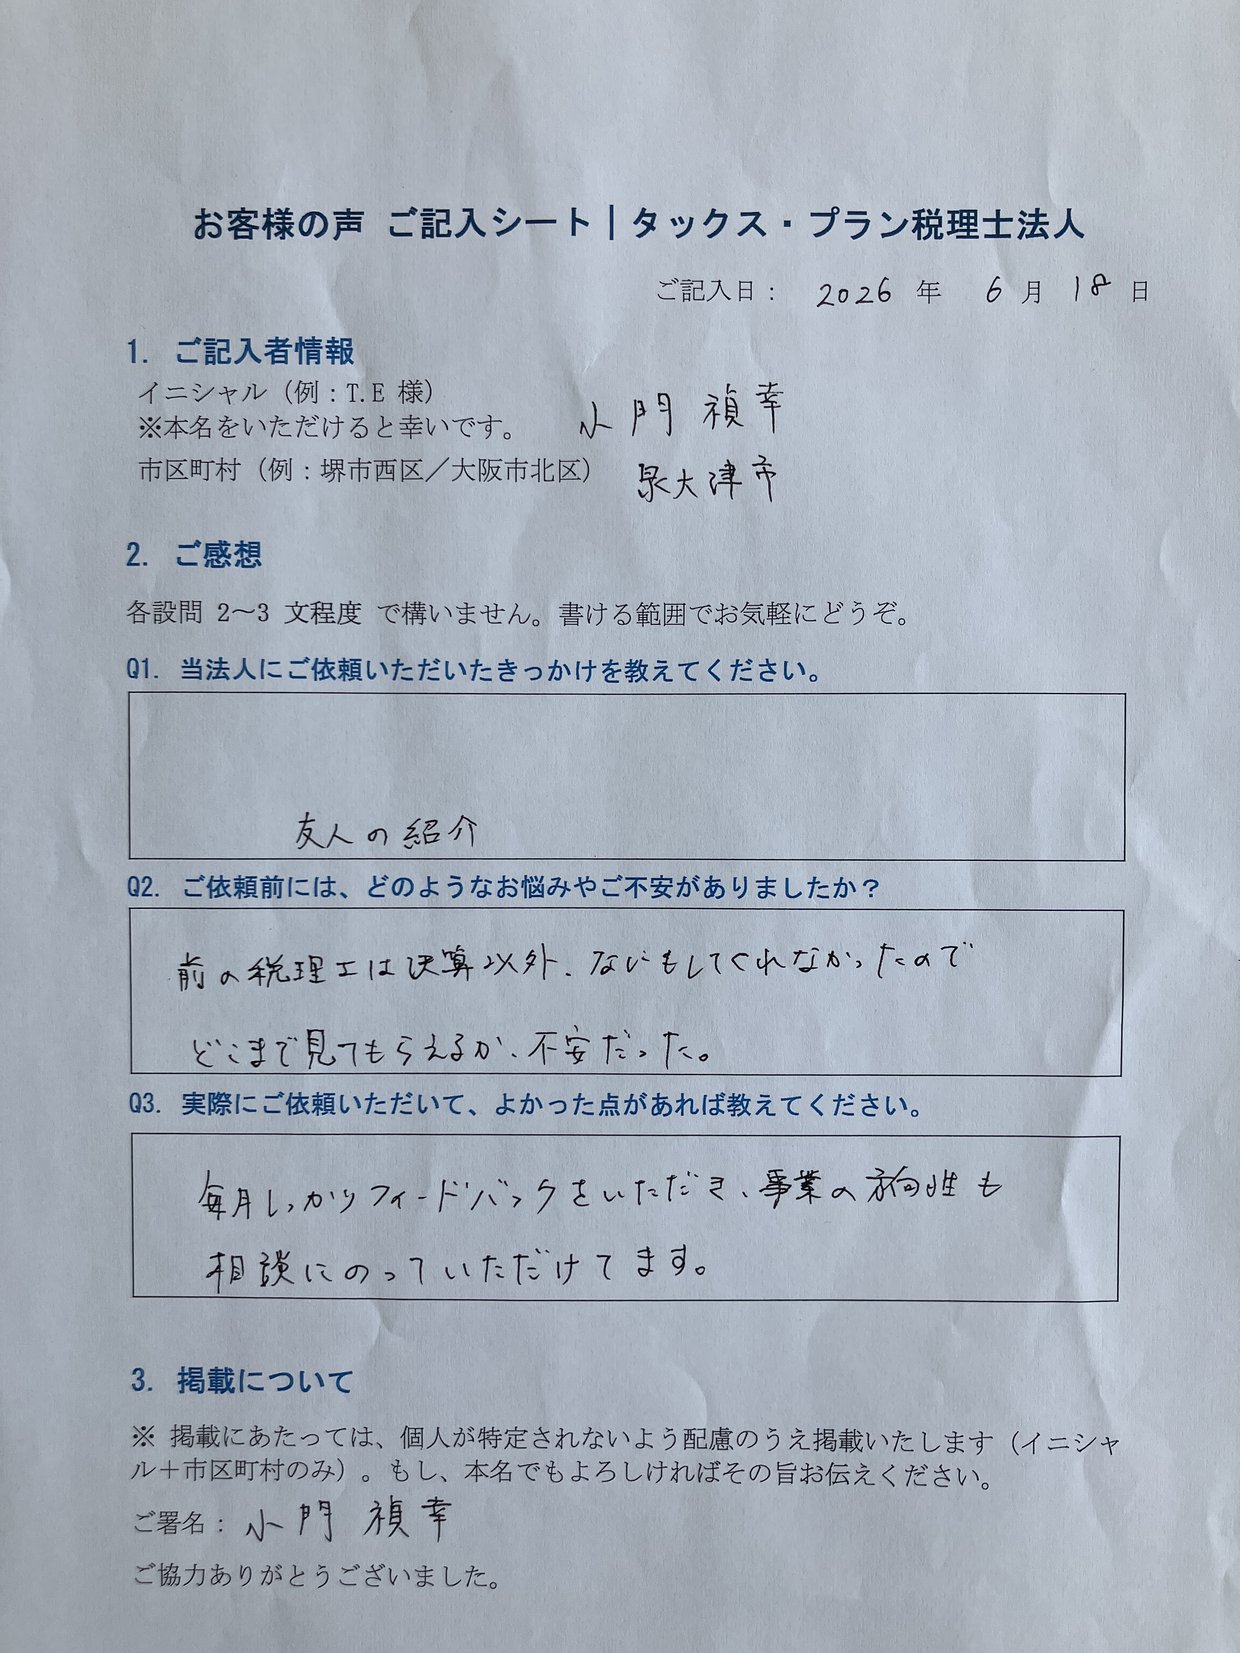 お客様の声 ご記入シート｜タックス・プラン税理士法人
ご記入日： 2026 年 6 月 18 日
1. ご記入者情報
イニシャル（例：T.E 様）
※本名をいただけると幸いです。 小門 禎幸
市区町村（例：堺市西区／大阪市北区） 泉大津市
2. ご感想
各設問 2～3 文程度 で構いません。書ける範囲でお気軽にどうぞ。
Q1. 当法人にご依頼いただいたきっかけを教えてください。
友人の紹介
Q2. ご依頼前には、どのようなお悩みやご不安がありましたか？
前の税理士は決算以外、なにもしてくれなかったので
どこまで見てもらえるか、不安だった。
Q3. 実際にご依頼いただいて、よかった点があれば教えてください。
毎月しっかりフィードバックをいただき、事業の方向性も
相談にのっていただけてます。
3. 掲載について
※ 掲載にあたっては、個人が特定されないよう配慮のうえ掲載いたします（イニシャ
ル＋市区町村のみ）。もし、本名でもよろしければその旨お伝えください。
ご署名： 小門 禎幸
ご協力ありがとうございました。